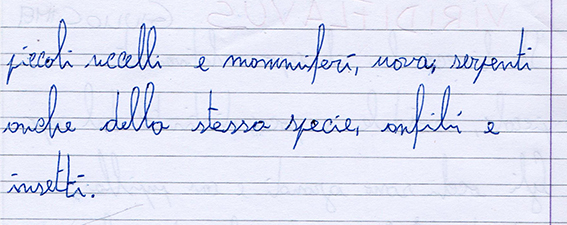 VIRIDIFLAVUS
piccoli uccelli e mammiferi, uova, serpenti
anche della stessa specie, anfibi e
insetti.